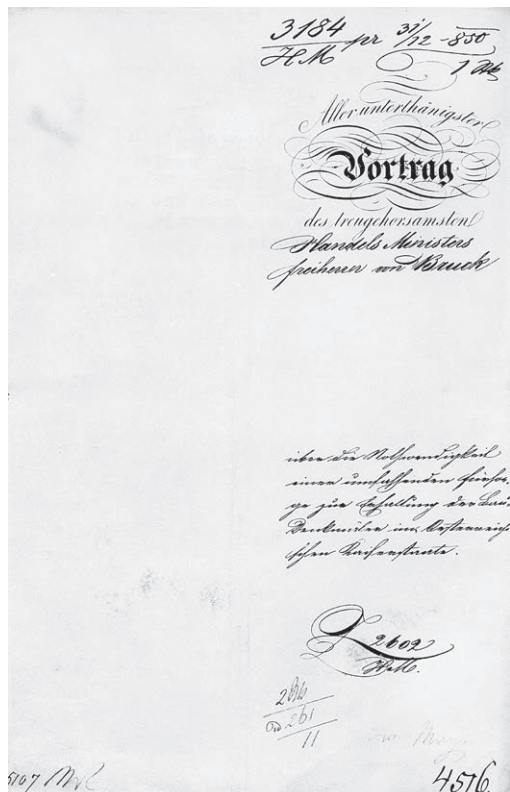 3184 pr 31/12 -850
HM
Aller unterthänigster
Vortrag
des treugehorsamsten
Handels Ministers
freiherrn von Bruck
über die Nothwendigkeit
einer umfassenden Fürsor-
ge zur Erhaltung der Bau-
Denkmäler im Oesterreichi-
schen Kaiserstaate.
Z 2602
HM.
261
11
5107
4576.